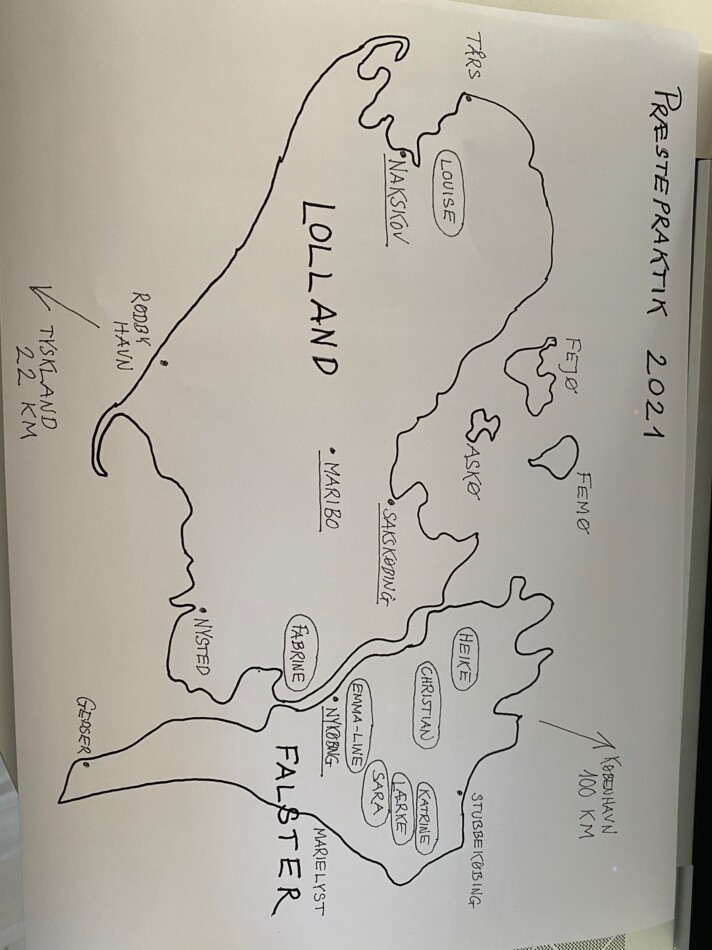 PRÆSTEPRAKTIK 2021
TÅRS
LOUISE
NAKSKOV
LOLLAND
FEJØ
FEMØ
ASKØ
RØDBY
HAVN
TYSKLAND
22 KM
MARIBO
SAKSKØBING
NYSTED
FABRINE
HEIKE
CHRISTIAN
EMMA-LINE
NYKØBING
SARA
LÆRKE
KATRINE
STUBBEKØBING
KØBENHAVN
100 KM
GEDSER
FALSTER
MARIELYST